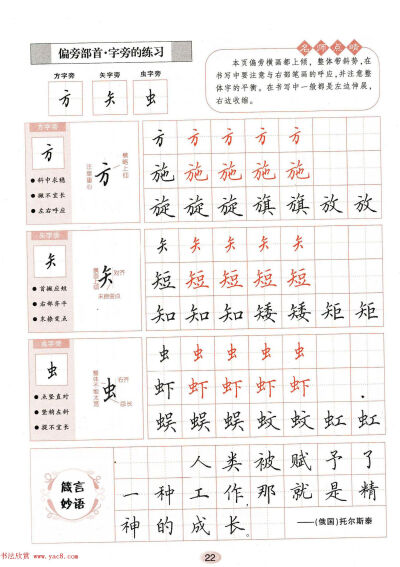 偏旁部首·字旁的练习
方字旁 矢字旁 虫字旁
方 矢 虫
名师点睛
本页偏旁横画都上倾，整体带斜势，在
书写中要注意与右部笔画的呼应，并注意整
体字的平衡。在书写中一般都是左边伸展，
右边收缩。
方字旁
方
斜中求稳
撇不宜长
左右呼应
方
横略上仰
注意重心
方 方 方 方 方
施 施 施 施 施
旋 旋 旋 旗 旗 放 放
矢字旁
矢
首撇应短
右部齐平
末捺变点
矢
对齐
末捺变点
矢 矢 矢 矢 矢
短 短 短 短 短
知 知 知 矮 矮 矩 矩
虫字旁
虫
点竖直对
竖稍左斜
提不宜长
虫
右齐
整体不能太宽
虫 虫 虫 虫 虫
虾 虾 虾 虾 虾
蜈 蜈 蜈 蚊 蚊 虹 虹
箴言
妙语
人类被赋予了
一种工作，那就是精
神的成长。
——(俄国)托尔斯泰
22
书法欣赏 www.yac8.com